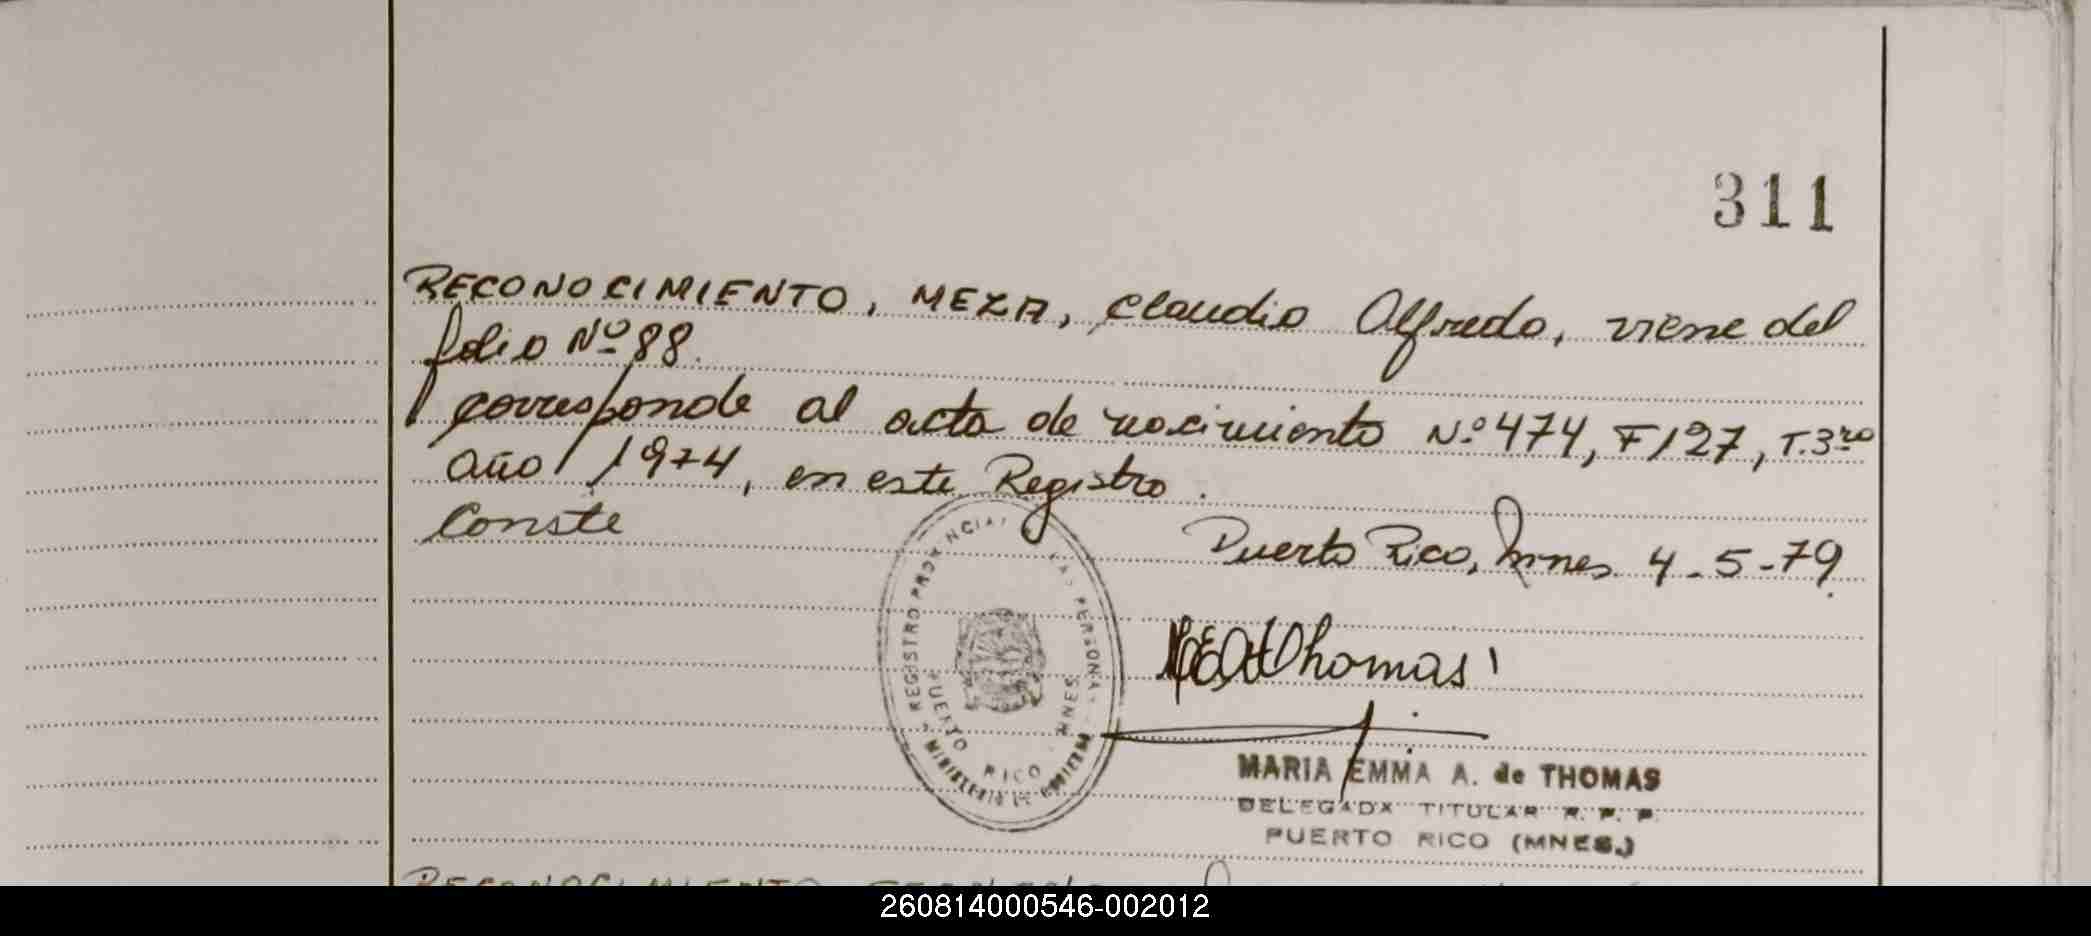 311
RECONOCIMIENTO, MEZA, Claudio Alfredo, viene del
folio Nº 88.
Corresponde al acta de nacimiento Nº 474, F 127, T. 3ro
año 1974, en este Registro.
Conste
Puerto Rico, Mnes. 4-5-79.
REGISTRO PROVINCIAL PERSONAS
PUERTO RICO MNES
MINISTERIO DE
Thomas
MARIA EMMA A. de THOMAS
DELEGADA TITULAR R. P. P.
PUERTO RICO (MNES.)
RECONOCIMIENTO
260814000546-002012